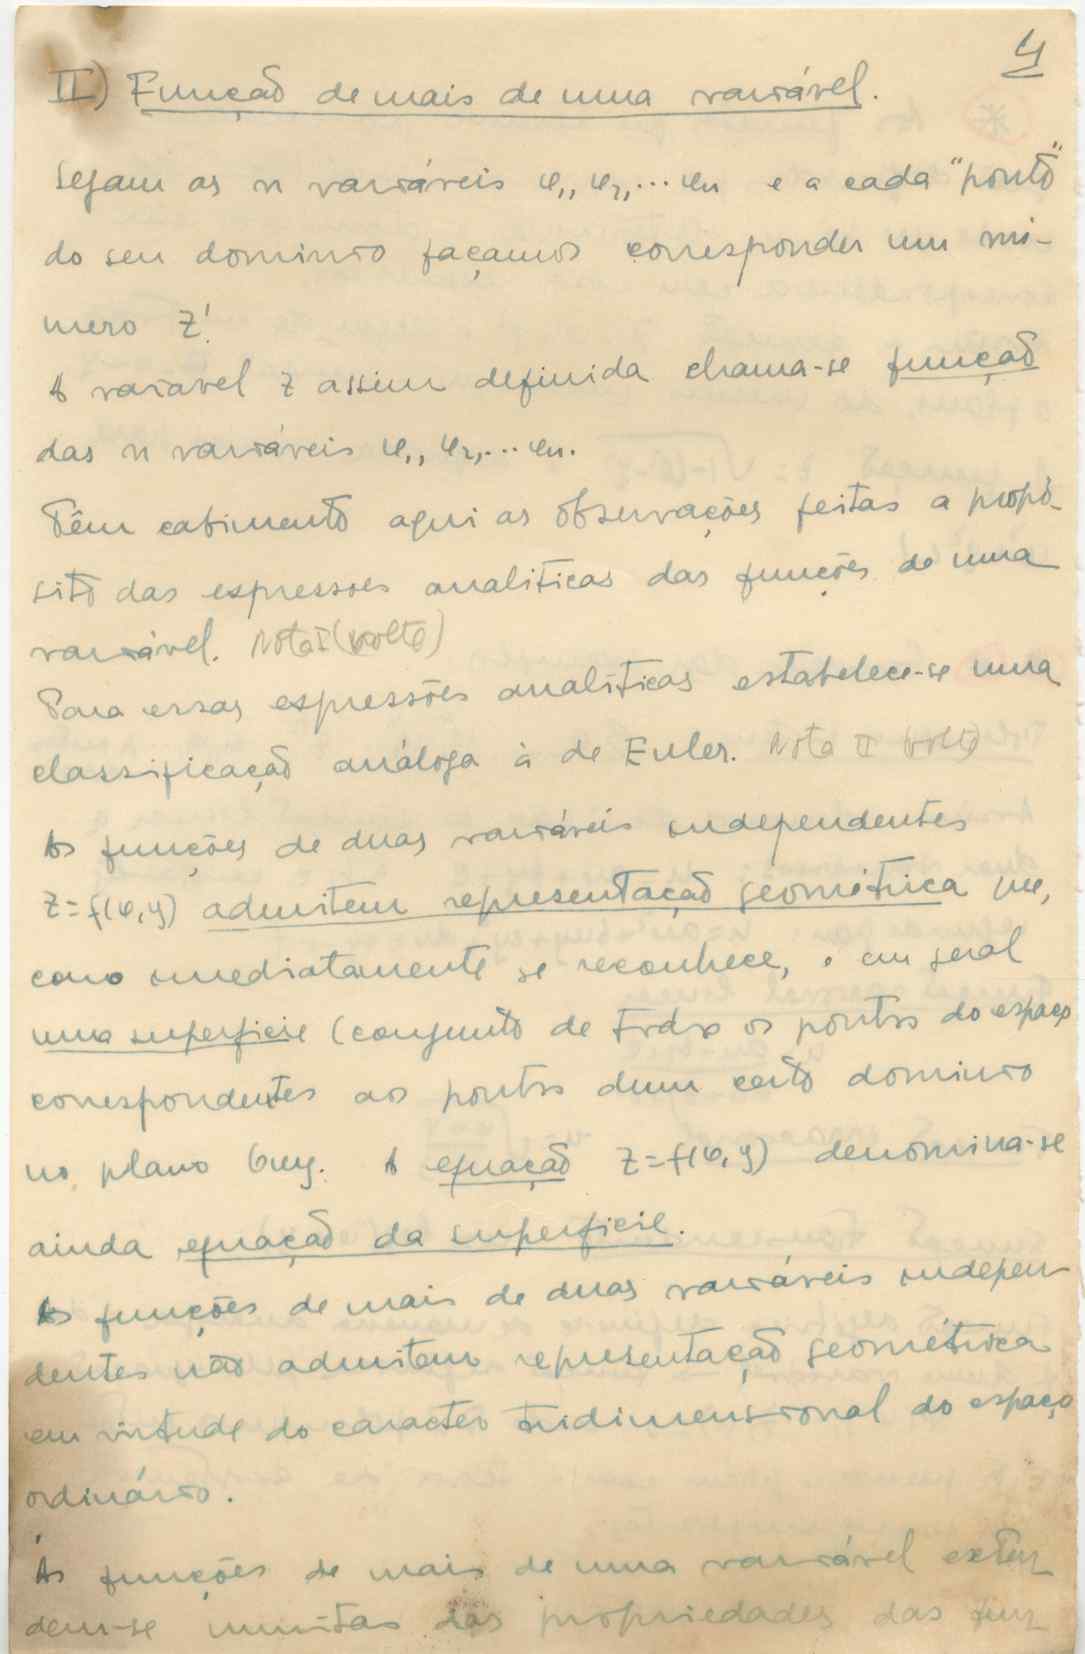 4
II) Função de mais de uma variável.
Sejam as n variáveis x₁, x₂, ... xn e a cada "ponto"
do seu dominio façamos corresponder um nú-
mero z.
A variavel z assim definida chama-se função
das n variáveis x₁, x₂, ... xn.
Têm cabimento aqui as observações feitas a propó-
sito das expressoes analiticas das funções de uma
variável. Nota I (volte)
Para essas expressões analíticas estabelece-se uma
classificação análoga à de Euler. Nota II volte
As funções de duas variáveis independentes
z = f(x, y) admitem representação geométrica que,
como imediatamente se reconhece, é em geral
uma superficie (conjunto de todos os pontos do espaço
correspondentes aos pontos dum certo dominio
no plano Oxy. A equação z = f(x, y) denomina-se
ainda equação da superficie.
As funções de mais de duas variáveis indepen
dentes não admitem representação geométrica
em virtude do caracter tridimensional do espaço
ordinário.
Às funções de mais de uma variável exten
dem-se muitas das propriedades das fun